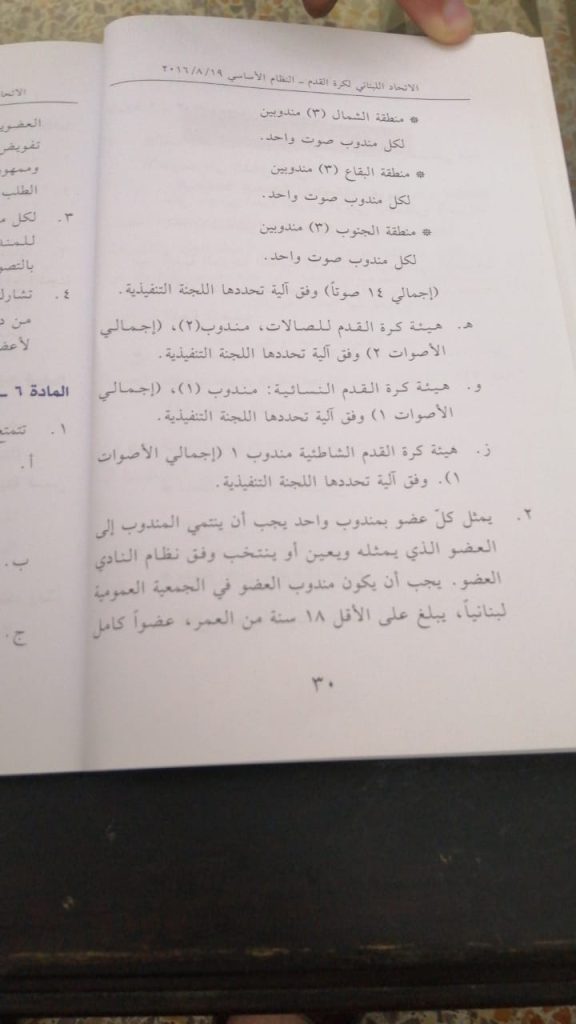 الاتحاد اللبناني لكرة القدم – النظام الأساسي ٢٠١٦/٨/١٩
* منطقة الشمال (٣) مندوبين
لكل مندوب صوت واحد.
* منطقة البقاع (٣) مندوبين
لكل مندوب صوت واحد.
* منطقة الجنوب (٣) مندوبين
لكل مندوب صوت واحد.
(إجمالي ١٤ صوتاً) وفق آلية تحددها اللجنة التنفيذية.
هـ. هيئة كرة القدم للصالات، مندوب(٢)، (إجمالي
الأصوات ٢) وفق آلية تحددها اللجنة التنفيذية.
و. هيئة كرة القدم النسائية: مندوب (١)، (إجمالي
الأصوات ١) وفق آلية تحددها اللجنة التنفيذية.
ز. هيئة كرة القدم الشاطئية مندوب ١ (إجمالي الأصوات
١). وفق آلية تحددها اللجنة التنفيذية.
٢. يمثل كلّ عضو بمندوب واحد يجب أن ينتمي المندوب إلى
العضو الذي يمثله ويعين أو ينتخب وفق نظام النادي
العضو. يجب أن يكون مندوب العضو في الجمعية العمومية
لبنانياً، يبلغ على الأقل ١٨ سنة من العمر، عضواً كامل
٣٠
تفويض
الطلب
٣. لكل
٤.
من
المادة ٦ –
١. تتمتع
أ.
ب.
ج.